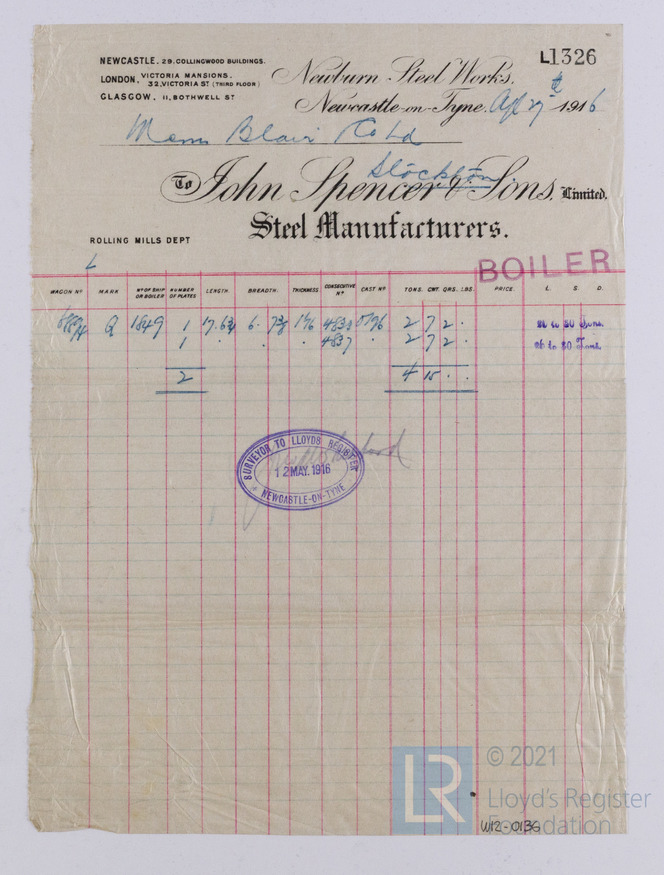 NEWCASTLE. 29. COLLINGWOOD BUILDINGS.
LONDON. VICTORIA MANSIONS. 32, VICTORIA ST (THIRD FLOOR)
GLASGOW. 11, BOTHWELL ST
L1326
Newburn Steel Works.
Newcastle-on-Tyne. 1916
Blair Co Ld
Stockton
To John Spencer & Sons, Limited.
Steel Manufacturers.
ROLLING MILLS DEPT
L
BOILER
WAGON No MARK No OF SHIP OR BOILER NUMBER OF PLATES LENGTH. BREADTH. THICKNESS. CONSECUTIVE No CAST No TONS. CWT. QRS. LBS. PRICE. L. S. D.
Q 1849 1 6. 2 7 2 . 26 to 30 Tons.
1 . . . 4837 . 2 7 2 . 26 to 30 Tons.
2 4 15 . .
SURVEYOR TO LLOYDS REGISTER
12 MAY. 1916
NEWCASTLE-ON-TYNE
LR
© 2021
Lloyd's Register
Foundation
W12-0136